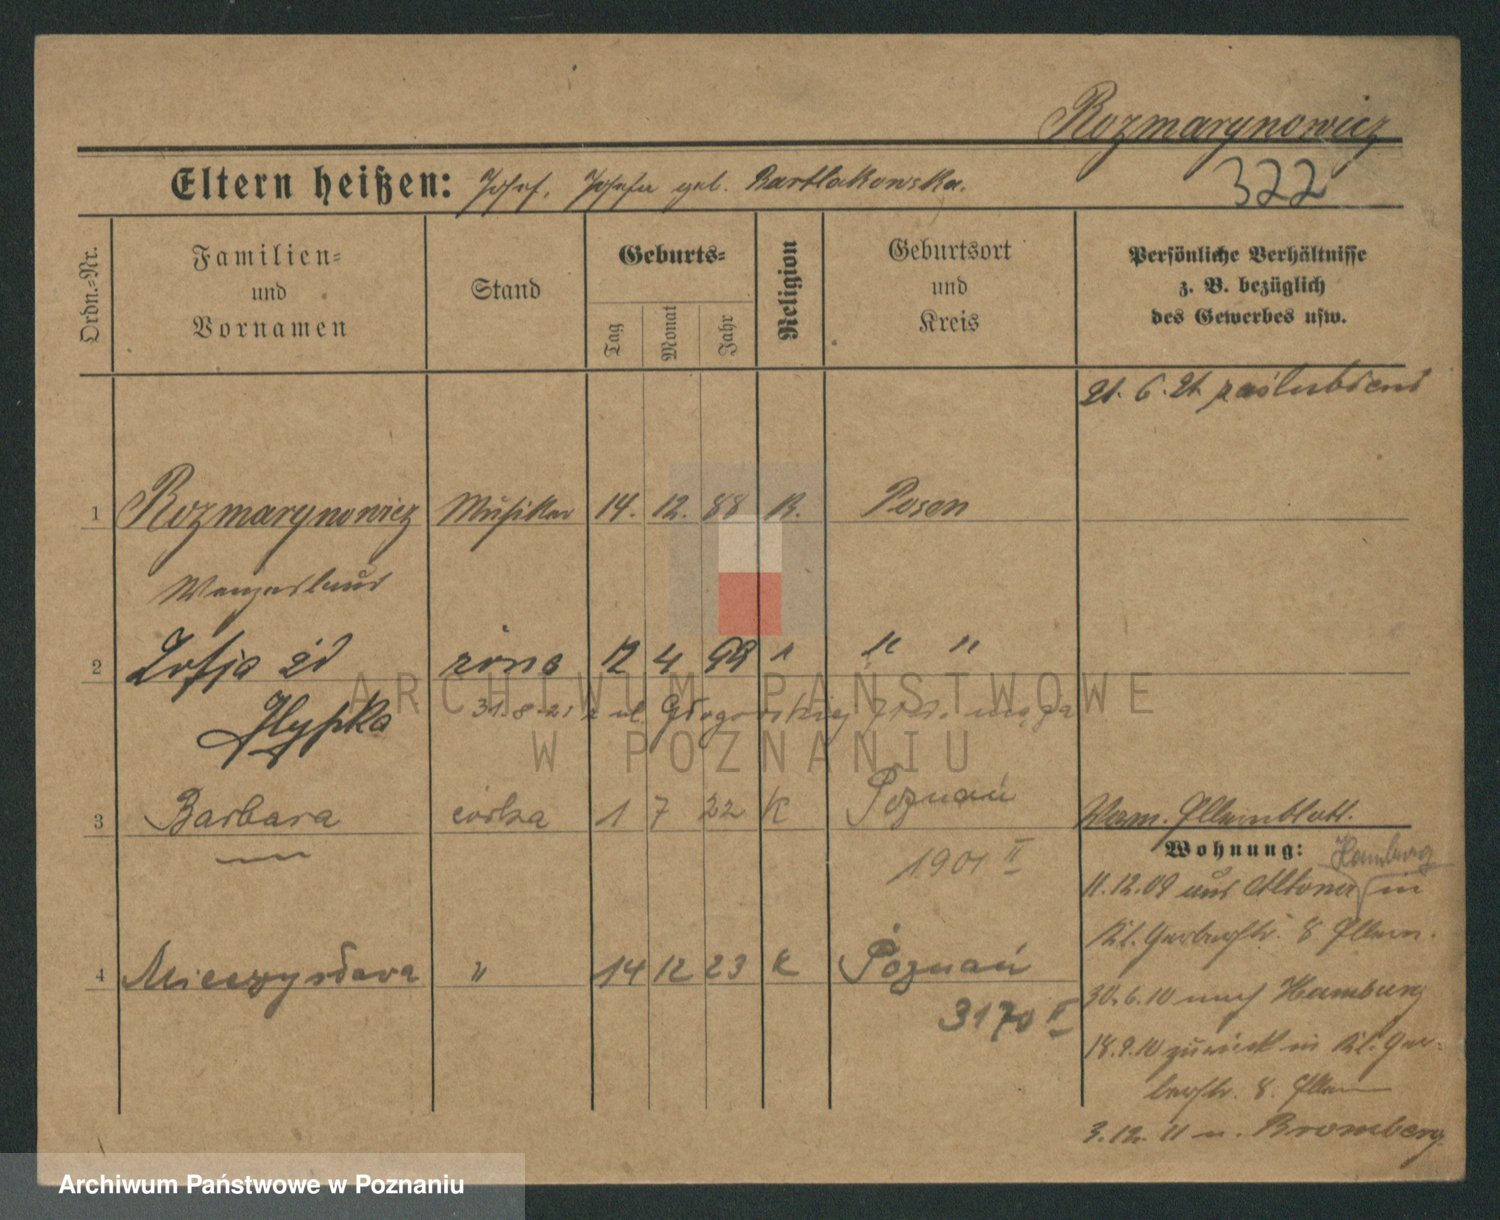 Rozmarynowicz
322
Eltern heißen: Josef, Josefa geb. Bartlakowska.
Ordn.-Nr.
Familien-
und
Vornamen
Stand
Geburts-
Tag
Monat
Jahr
Religion
Geburtsort
und
Kreis
Persönliche Verhältnisse
z. B. bezüglich
des Gewerbes usw.
21. 6. 21. zaślubieni
1 Rozmarynowicz Musiker 14. 12. 88 K. Posen
Wenzeslaus
2 Zofja żona 12 4 99 " " "
Hypka
31.8.21 z ul. Głogowskiej męża
3 Barbara córka 1 7 22 K Poznań
1901 II
4 Mieczysława " 14 12 23 K Poznań
3170 II
Vom. Elternblatt.
Wohnung:
Hamburg
11.12.09 aus Altona in
Kl. Gerberstr. 8 Eltern.
30.6.10 nach Hamburg
18.9.10 zurück in Kl. Ger-
berstr. 8. Eltern
3.12.11 n. Bromberg
ARCHIWUM PAŃSTWOWE
W POZNANIU
Archiwum Państwowe w Poznaniu